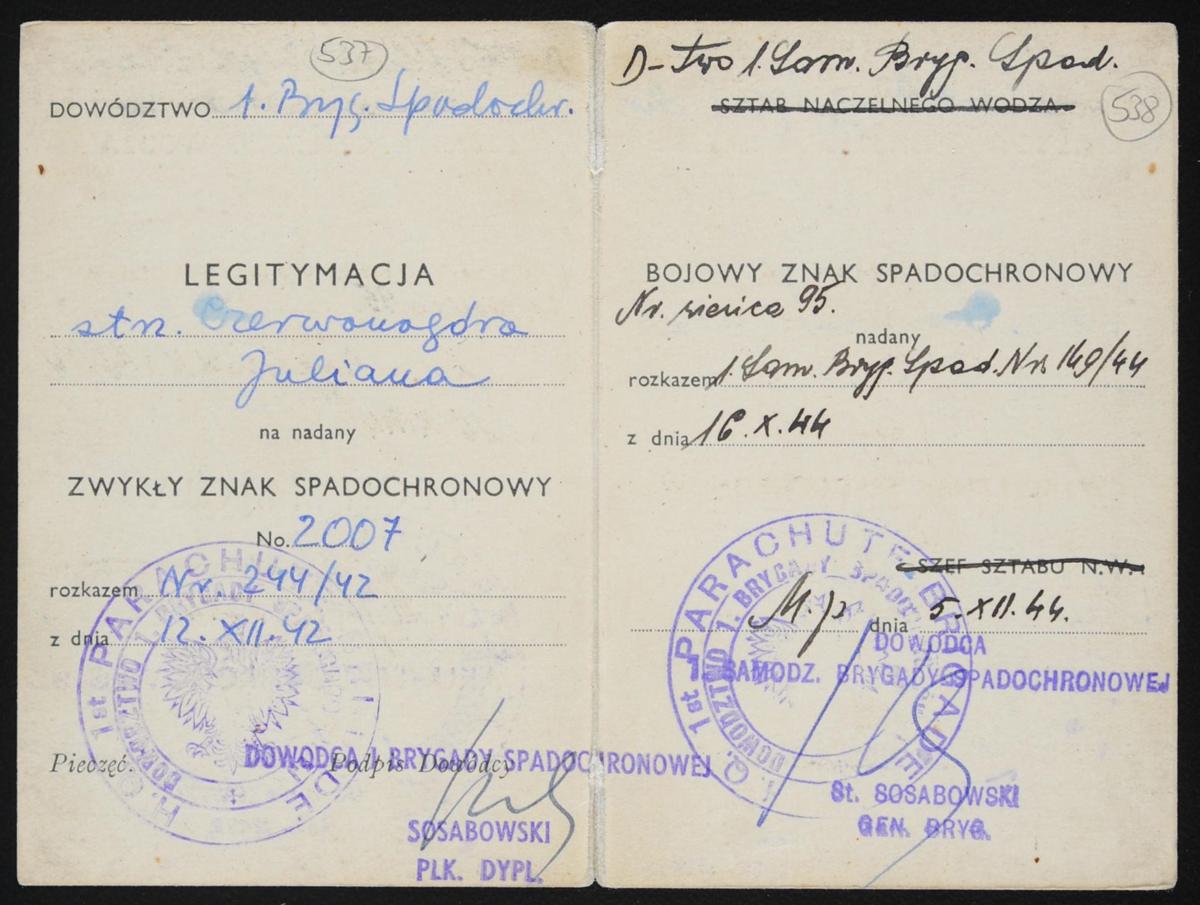 537
DOWÓDZTWO 1. Bryg. Spadochr.
LEGITYMACJA
stn. Czerwonogóra
Juliana
na nadany
ZWYKŁY ZNAK SPADOCHRONOWY
No. 2007
rozkazem Nr. 244/42
z dnia 12. XII. 42
H.Q. 1st PARACHUTE BRIGADE
DOWÓDZTWO 1. BRYGADY SPADOCHR
Pieczęć. Podpis Dowódcy
DOWÓDCA 1 BRYGADY SPADOCHRONOWEJ
SOSABOWSKI
PLK. DYPL.
D-Two 1. Sam. Bryg. Spad.
SZTAB NACZELNEGO WODZA
538
BOJOWY ZNAK SPADOCHRONOWY
Nr. wieńca 95.
nadany
rozkazem 1. Sam. Bryg. Spad. Nr. 149/44
z dnia 16. X. 44
SZEF SZTABU N.W.
M. p. dnia 5. XII. 44.
H.Q. 1st PARACHUTE BRIGADE
DOWÓDZTWO 1. BRYGADY SPADOCHR
DOWÓDCA
1. SAMODZ. BRYGADY SPADOCHRONOWEJ
St. SOSABOWSKI
GEN. BRYG.